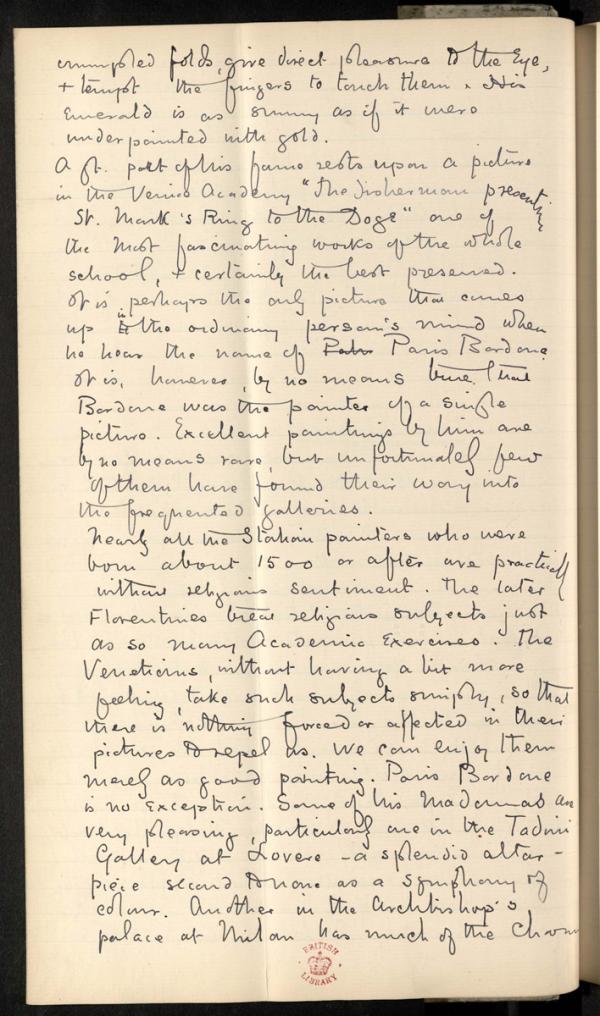 crumpled folds, give direct pleasure to the Eye,
+ tempt the fingers to touch them. His
Emerald is as sunny as if it were
underpainted with gold.
A gt. part of his fame rests upon a picture
in the Venice Academy "The Fisherman presenting
St. Mark's Ring to the Doge" one of
the most fascinating works of the whole
school, + certainly the best preserved.
It is perhaps the only picture that comes
up in the ordinary person's mind when
he hears the name of Paris Bordone.
It is, however, by no means true that
Bordone was the painter of a single
picture. Excellent paintings by him are
by no means rare, but unfortunately few
of them have found their way into
the frequented galleries.
Nearly all the Italian painters who were
born about 1500 or after are practically
without religious sentiment. The later
Florentines treat religious subjects just
as so many Academic Exercises. The
Venetians, without having a bit more
feeling, take such subjects simply, so that
there is nothing forced or affected in their
pictures to repel us. We can enjoy them
merely as good painting. Paris Bordone
is no Exception. Some of his Madonnas are
very pleasing, particularly one in the Tadini
Gallery at Lovere - a splendid altar-
piece second to none as a Symphony of
colour. Another in the Archbishop's
palace at Milan has much of the charm
BRITISH
LIBRARY